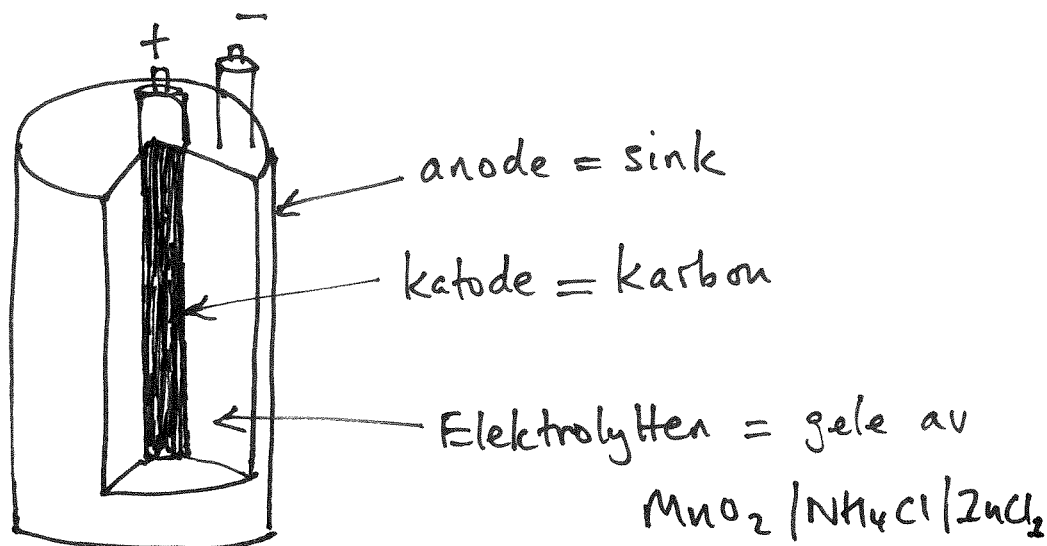 + −
anode = sink
katode = karbon
Elektrolytten = gele av
MnO₂ /NH₄Cl/ZnCl₂